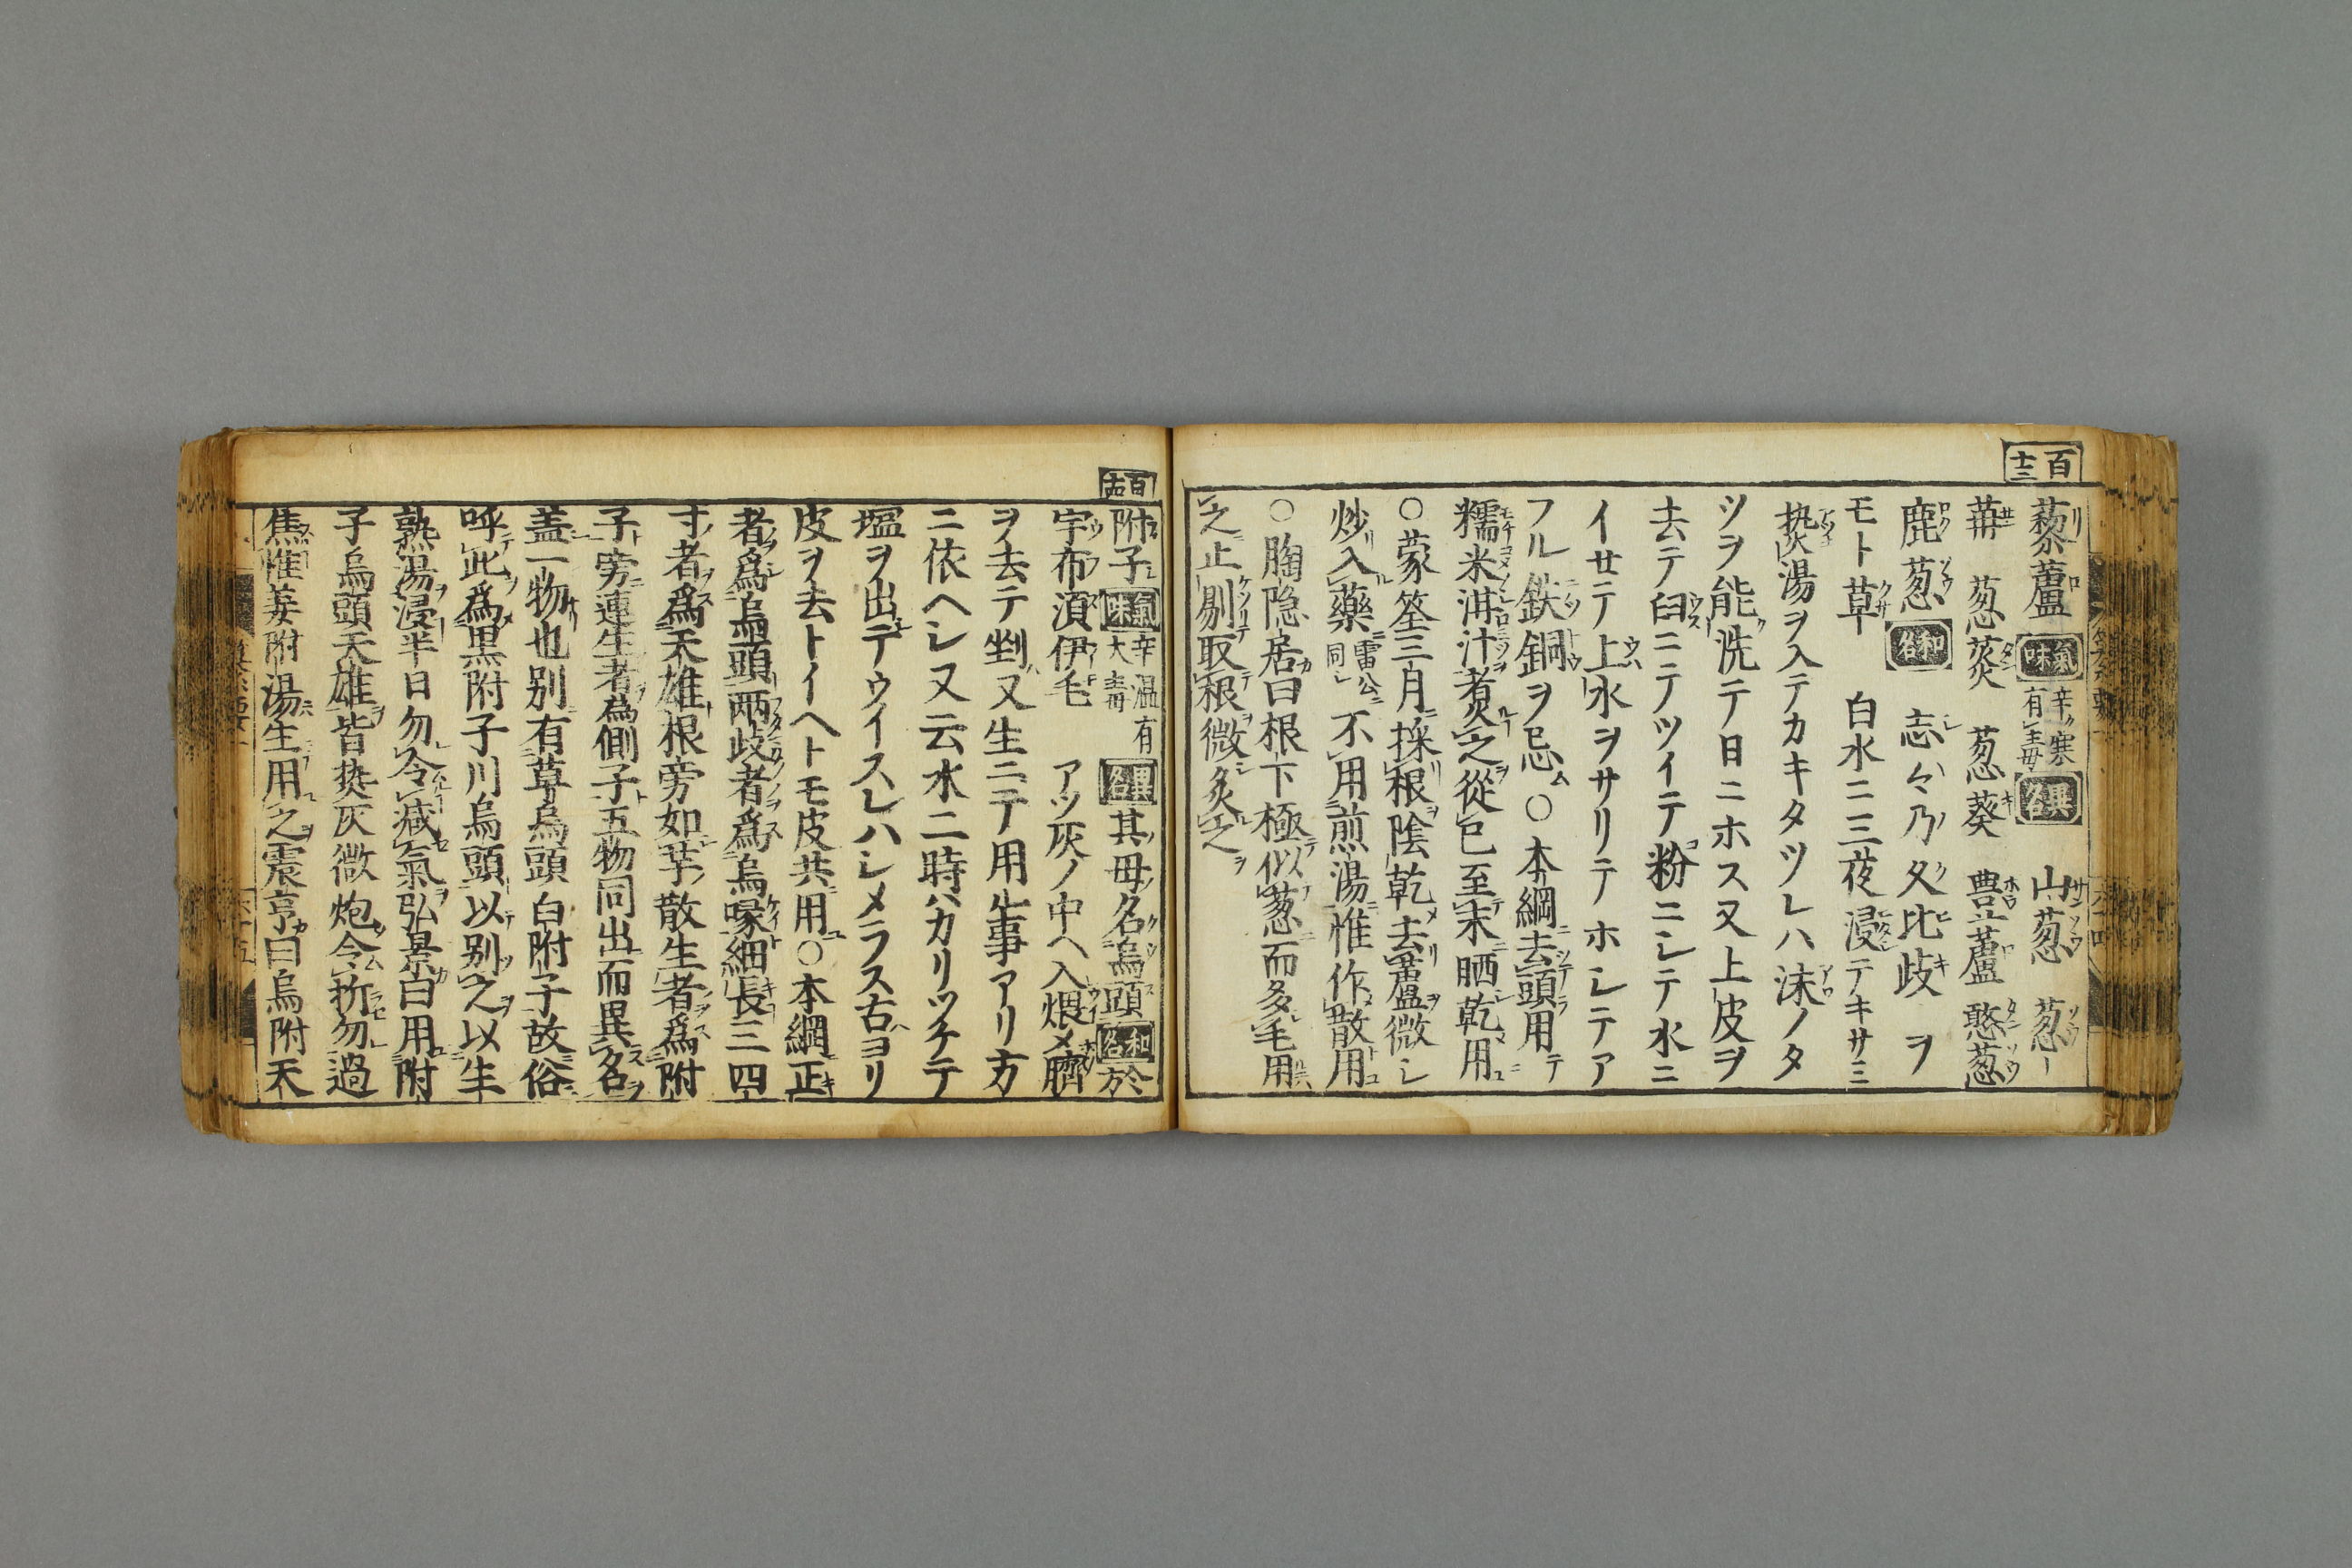 百十三
藜蘆 氣味 辛寒有毒 異名 山葱 葱
葱苒 葱菼 葱葵 豊蘆 憨葱
鹿葱 和名 志々乃久比歧 ヲ
モト草 白水ニ三夜浸テキサミ
热湯ヲ入テカキタツレハ沫ノタ
ツヲ能洗テ日ニホス又上皮ヲ
去テ臼ニテツイテ粉ニシテ水ニ
イサテ上水ヲサリテホシテア
フル鉄銅ヲ忌○本綱去頭用
糯米泔汁煑之從巳至未晒乾用
○蒙筌三月採根陰乾去蘆微
炒入藥雷公同不用煎湯惟作散用
○陶隐居曰根下極似葱而多毛用
之止剔取根微炙之
百十四
附子 氣味 辛温有大毒 異名 其母名烏頭 和名 於
宇布湏伊毛 アツ灰ノ中ヘ入煨メ臍
ヲ去テ剉又生ニテ用生事アリ方
ニ依ヘシ又云水二時ハカリツケテ
塩ヲ出テウイスレハシメラス古ヨリ
皮ヲ去トイヘトモ皮共用○本綱正
者爲烏頭两歧者爲烏喙細長三四
寸者爲天雄根旁如芋散生者爲附
子旁連生者爲側子五物同出而異名
盖一物也别有草烏頭白附子故俗
呼此爲黒附子川烏頭以别之以生
熟湯浸半日勿令减氣弘景曰用附
子烏頭天雄皆热灰微炮令拆勿過
焦惟姜附湯生用之震亨曰烏附天